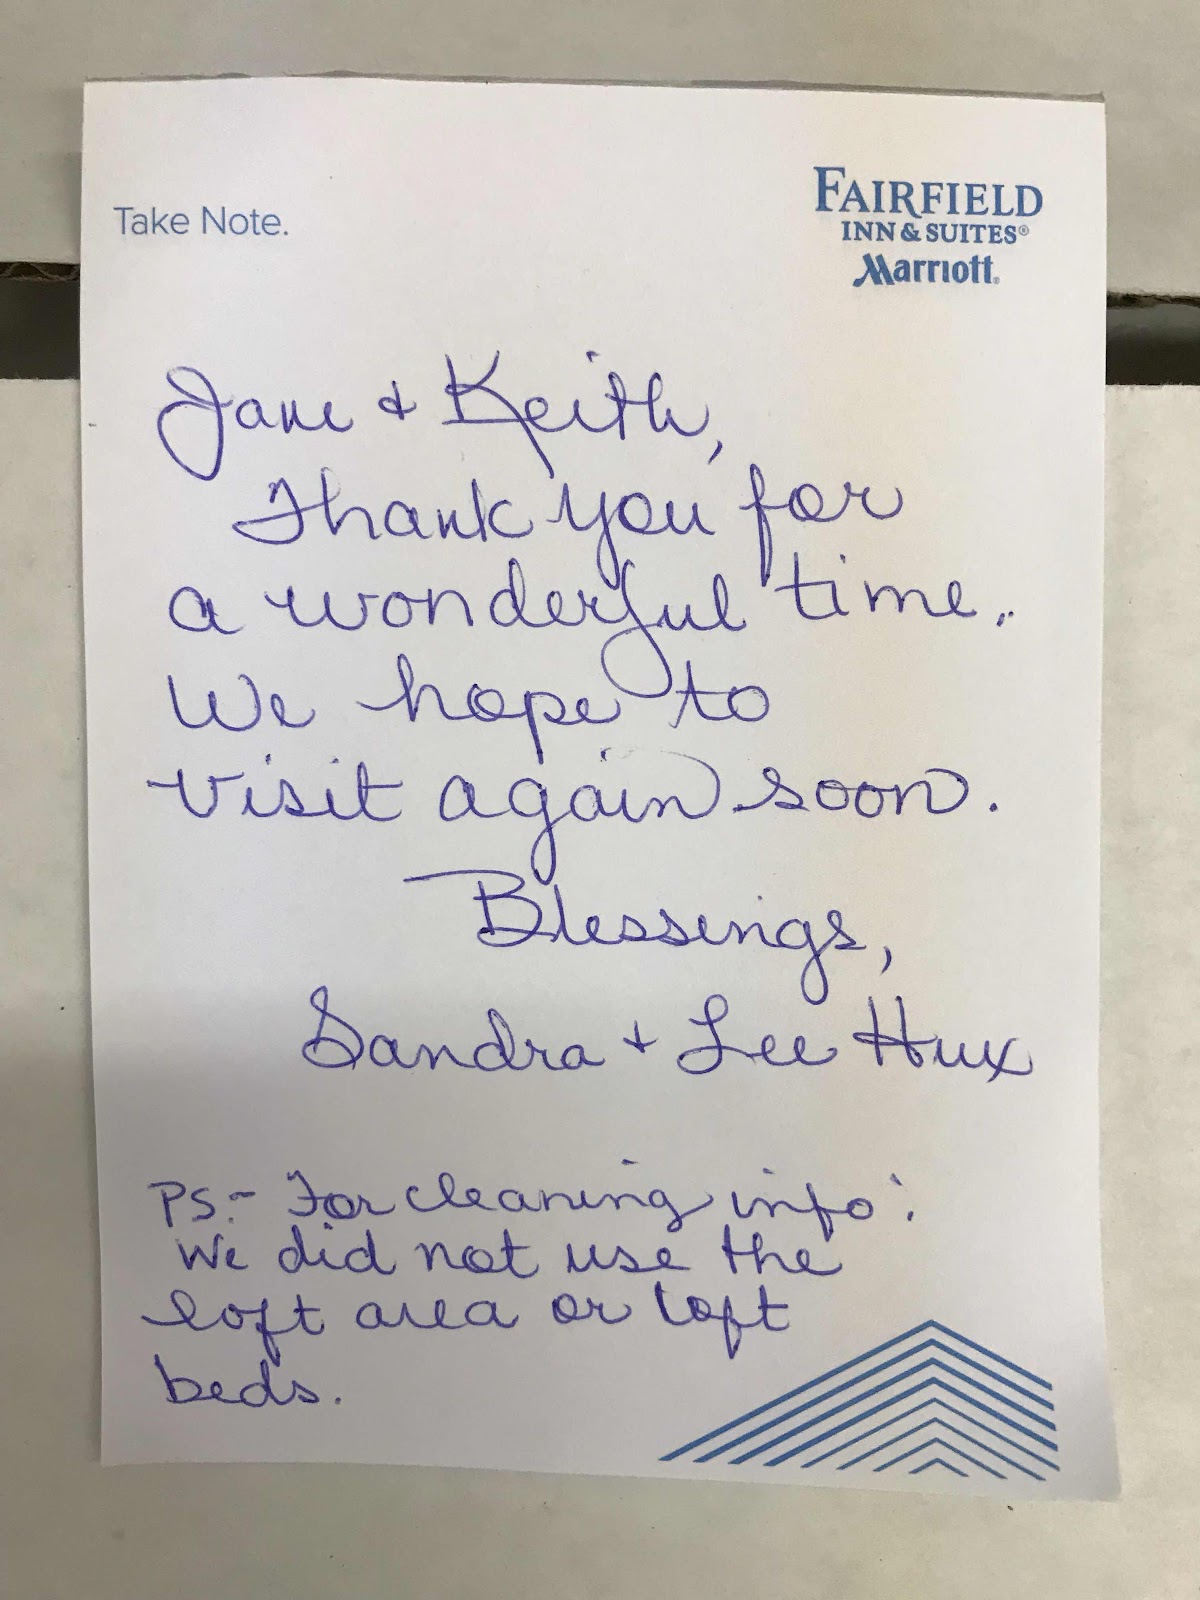 Take Note.
FAIRFIELD
INN & SUITES®
Marriott.
Jane + Keith,
Thank you for
a wonderful time.
We hope to
visit again soon.
Blessings,
Sandra + Lee Hux
PS:- For cleaning info:
We did not use the
loft area or loft
beds.